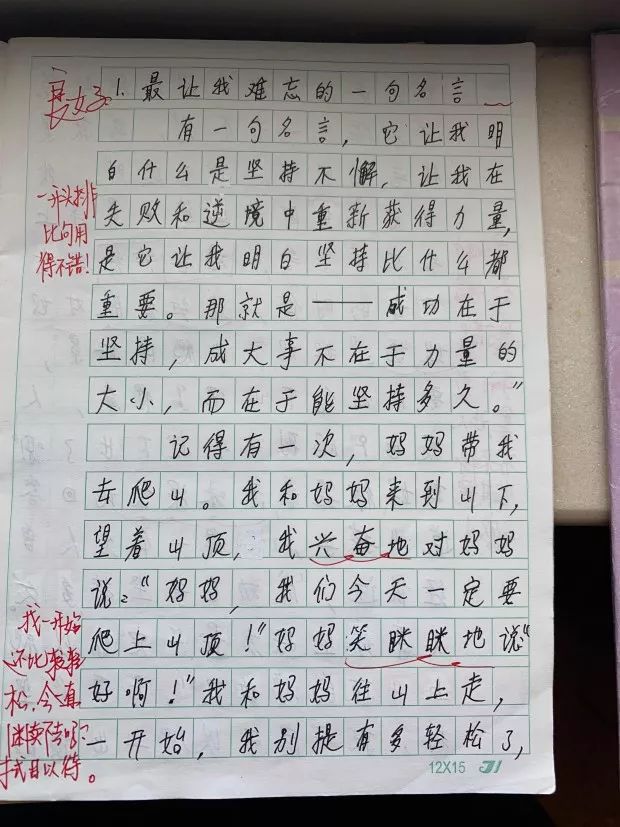 1. 最让我难忘的一句名言
有一句名言，它让我明
白什么是坚持不懈，让我在
失败和逆境中重新获得力量，
是它让我明白坚持比什么都
重要。那就是——成功在于
坚持，成大事不在于力量的
大小，而在于能坚持多久。”
记得有一次，妈妈带我
去爬山。我和妈妈来到山下，
望着山顶，我兴奋地对妈妈
说：“妈妈，我们今天一定要
爬上山顶！”妈妈笑眯眯地说“
好啊！”我和妈妈往山上走，
一开始，我别提有多轻松了，
一开头排
比句用
得不错！
我一开始
还比较轻
松，今真
12X15